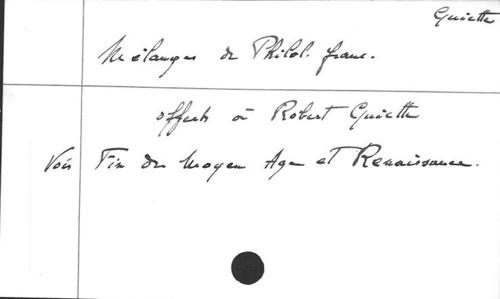 Guiette
Mélanges de Philol. franç.
offerts à Robert Guiette
Voir Fin du Moyen Age et Renaissance.